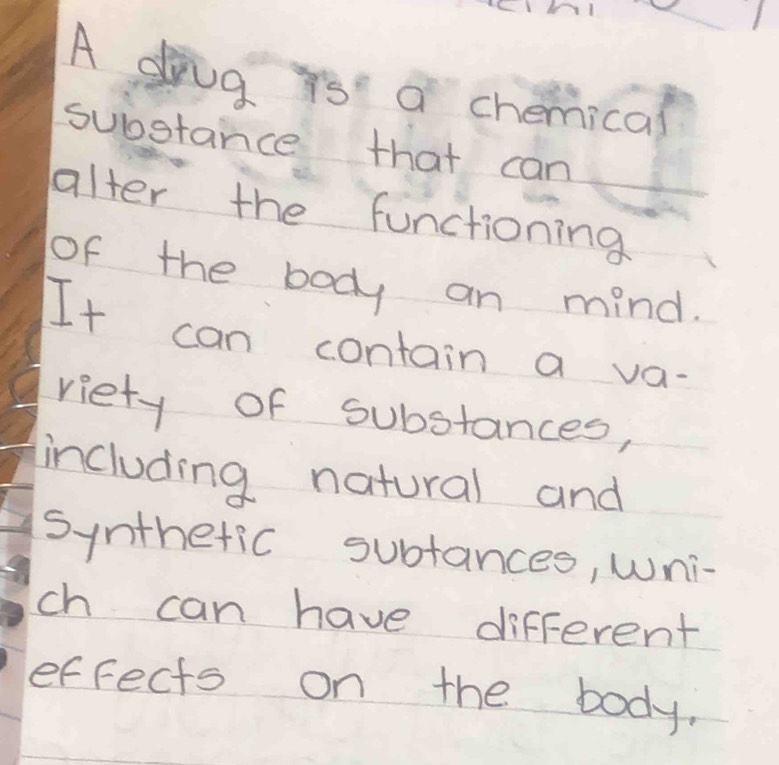 A drug is a chemical
substance that can
alter the functioning
of the body an mind.
It can contain a va-
riety of substances,
including natural and
synthetic subtances, wni-
ch can have different
effects on the body.